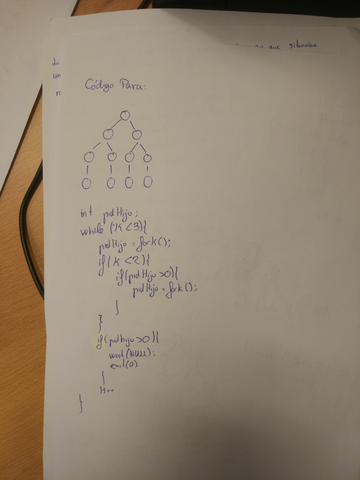 que
Código Para:
int pidHijo;
while (K<3){
pidHijo = fork();
if(K<2){
if(pidHijo>0){
pidHijo = fork();
}
}
if(pidHijo>0){
wait(NULL);
exit(0)
}
K++
}